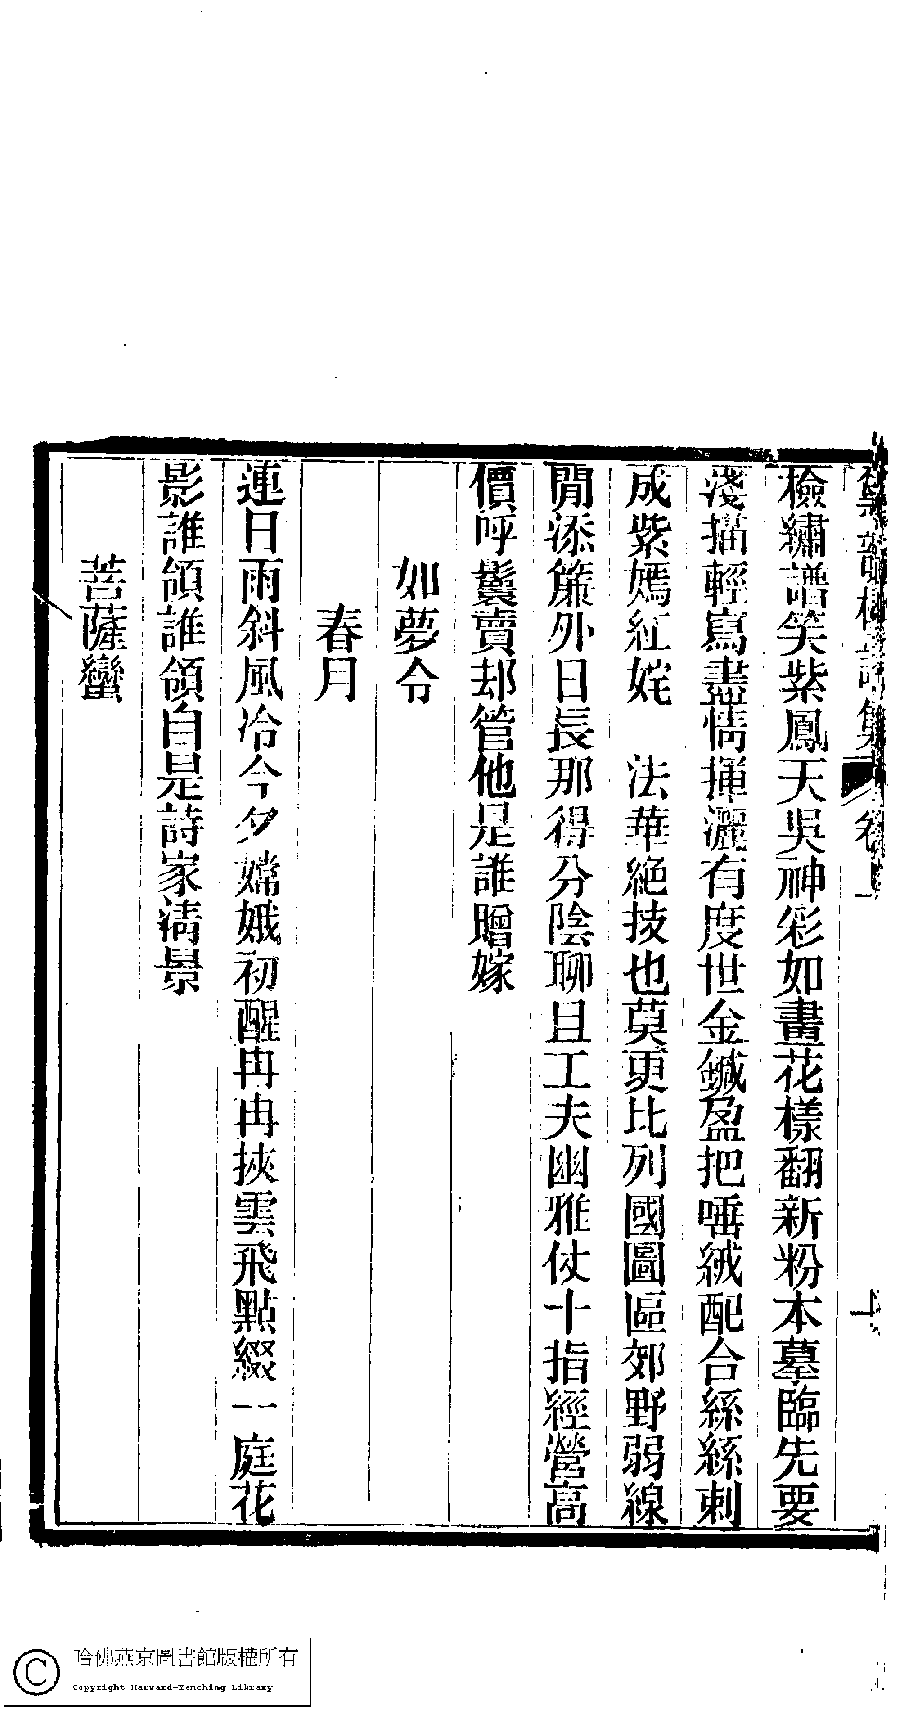 檢繡譜笑紫鳳天吳神彩如畫花樣翻新粉本摹臨先要
淺描輕寫盡情揮灑有度世金鍼盈把唾絨配合絲絲刺
成紫嫣紅姹　法華絶技也莫更比列國圖區郊野弱線
閒添簾外日長那得分陰聊且工夫幽雅仗十指經營高
價呼鬟賣却管他是誰贈嫁
如夢令
春月
連日雨斜風冷今夕嫦娥初醒冉冉挾雲飛點綴一庭花
影誰領誰領自是詩家淸景
菩薩蠻
哈佛燕京圖書館版權所有
Copyright Harvard-Yenching Library